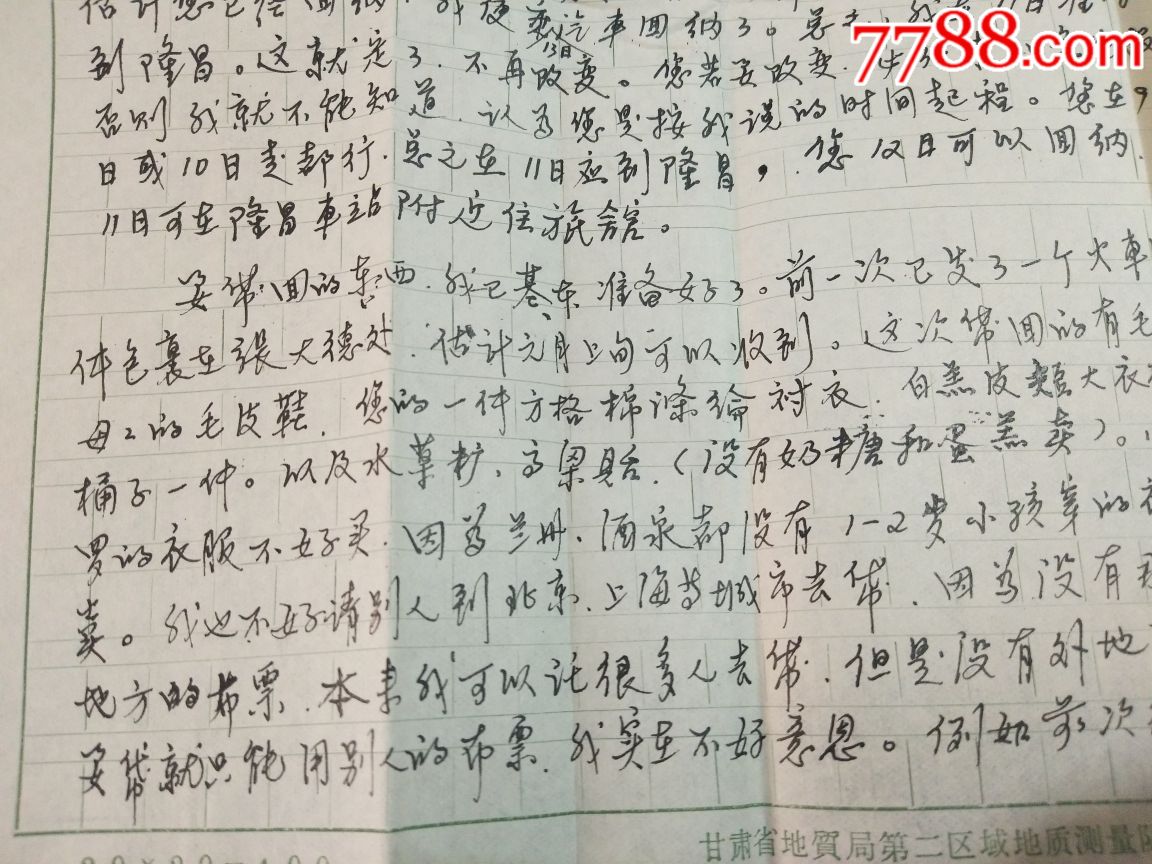 估计您已经回纳
我便乘汽車回纳了。总之
7788.com
到隆昌。这就定了,不再改变。您若要改变,
13日
否则我就不能知道,认为您是按我说的时间起程。您在9
日或10日走都行,总之在11日应到隆昌,您12日可以回纳.
11日可在隆昌車站附近住旅舍。
要带回的东西,我已基本准备好了。前一次已发了一个火車
体包裹在張大德处,估计元月上旬可以收到。这次带回的有毛
母々的毛皮鞋,您的一件方格棉滌綸衬衣,白羔皮大衣
桶子一件。以及水菓籽、高梁饴,(没有奶糖和蛋羔卖)。
罗的衣服不好买,因为兰州、酒泉都没有1-2岁小孩穿的衣
卖。我也不好请别人到北京、上海等城市去带,因为没有
地方的布票,本来我可以託很多人去带,但是没有外地
要带就只能用别人的布票,我实在不好意思。例如前次
甘肃省地質局第二区域地质测量队
20×20=400